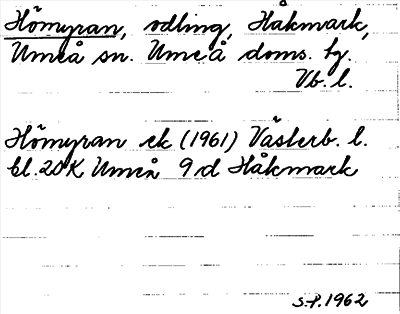 Hömyran, odling, Håkmark,
Umeå sn. Umeå doms. tg.
Vb. l.
Hömyran ek (1961) Västerb. l.
bl. 20K Umeå 9d Håkmark
S.P. 1962